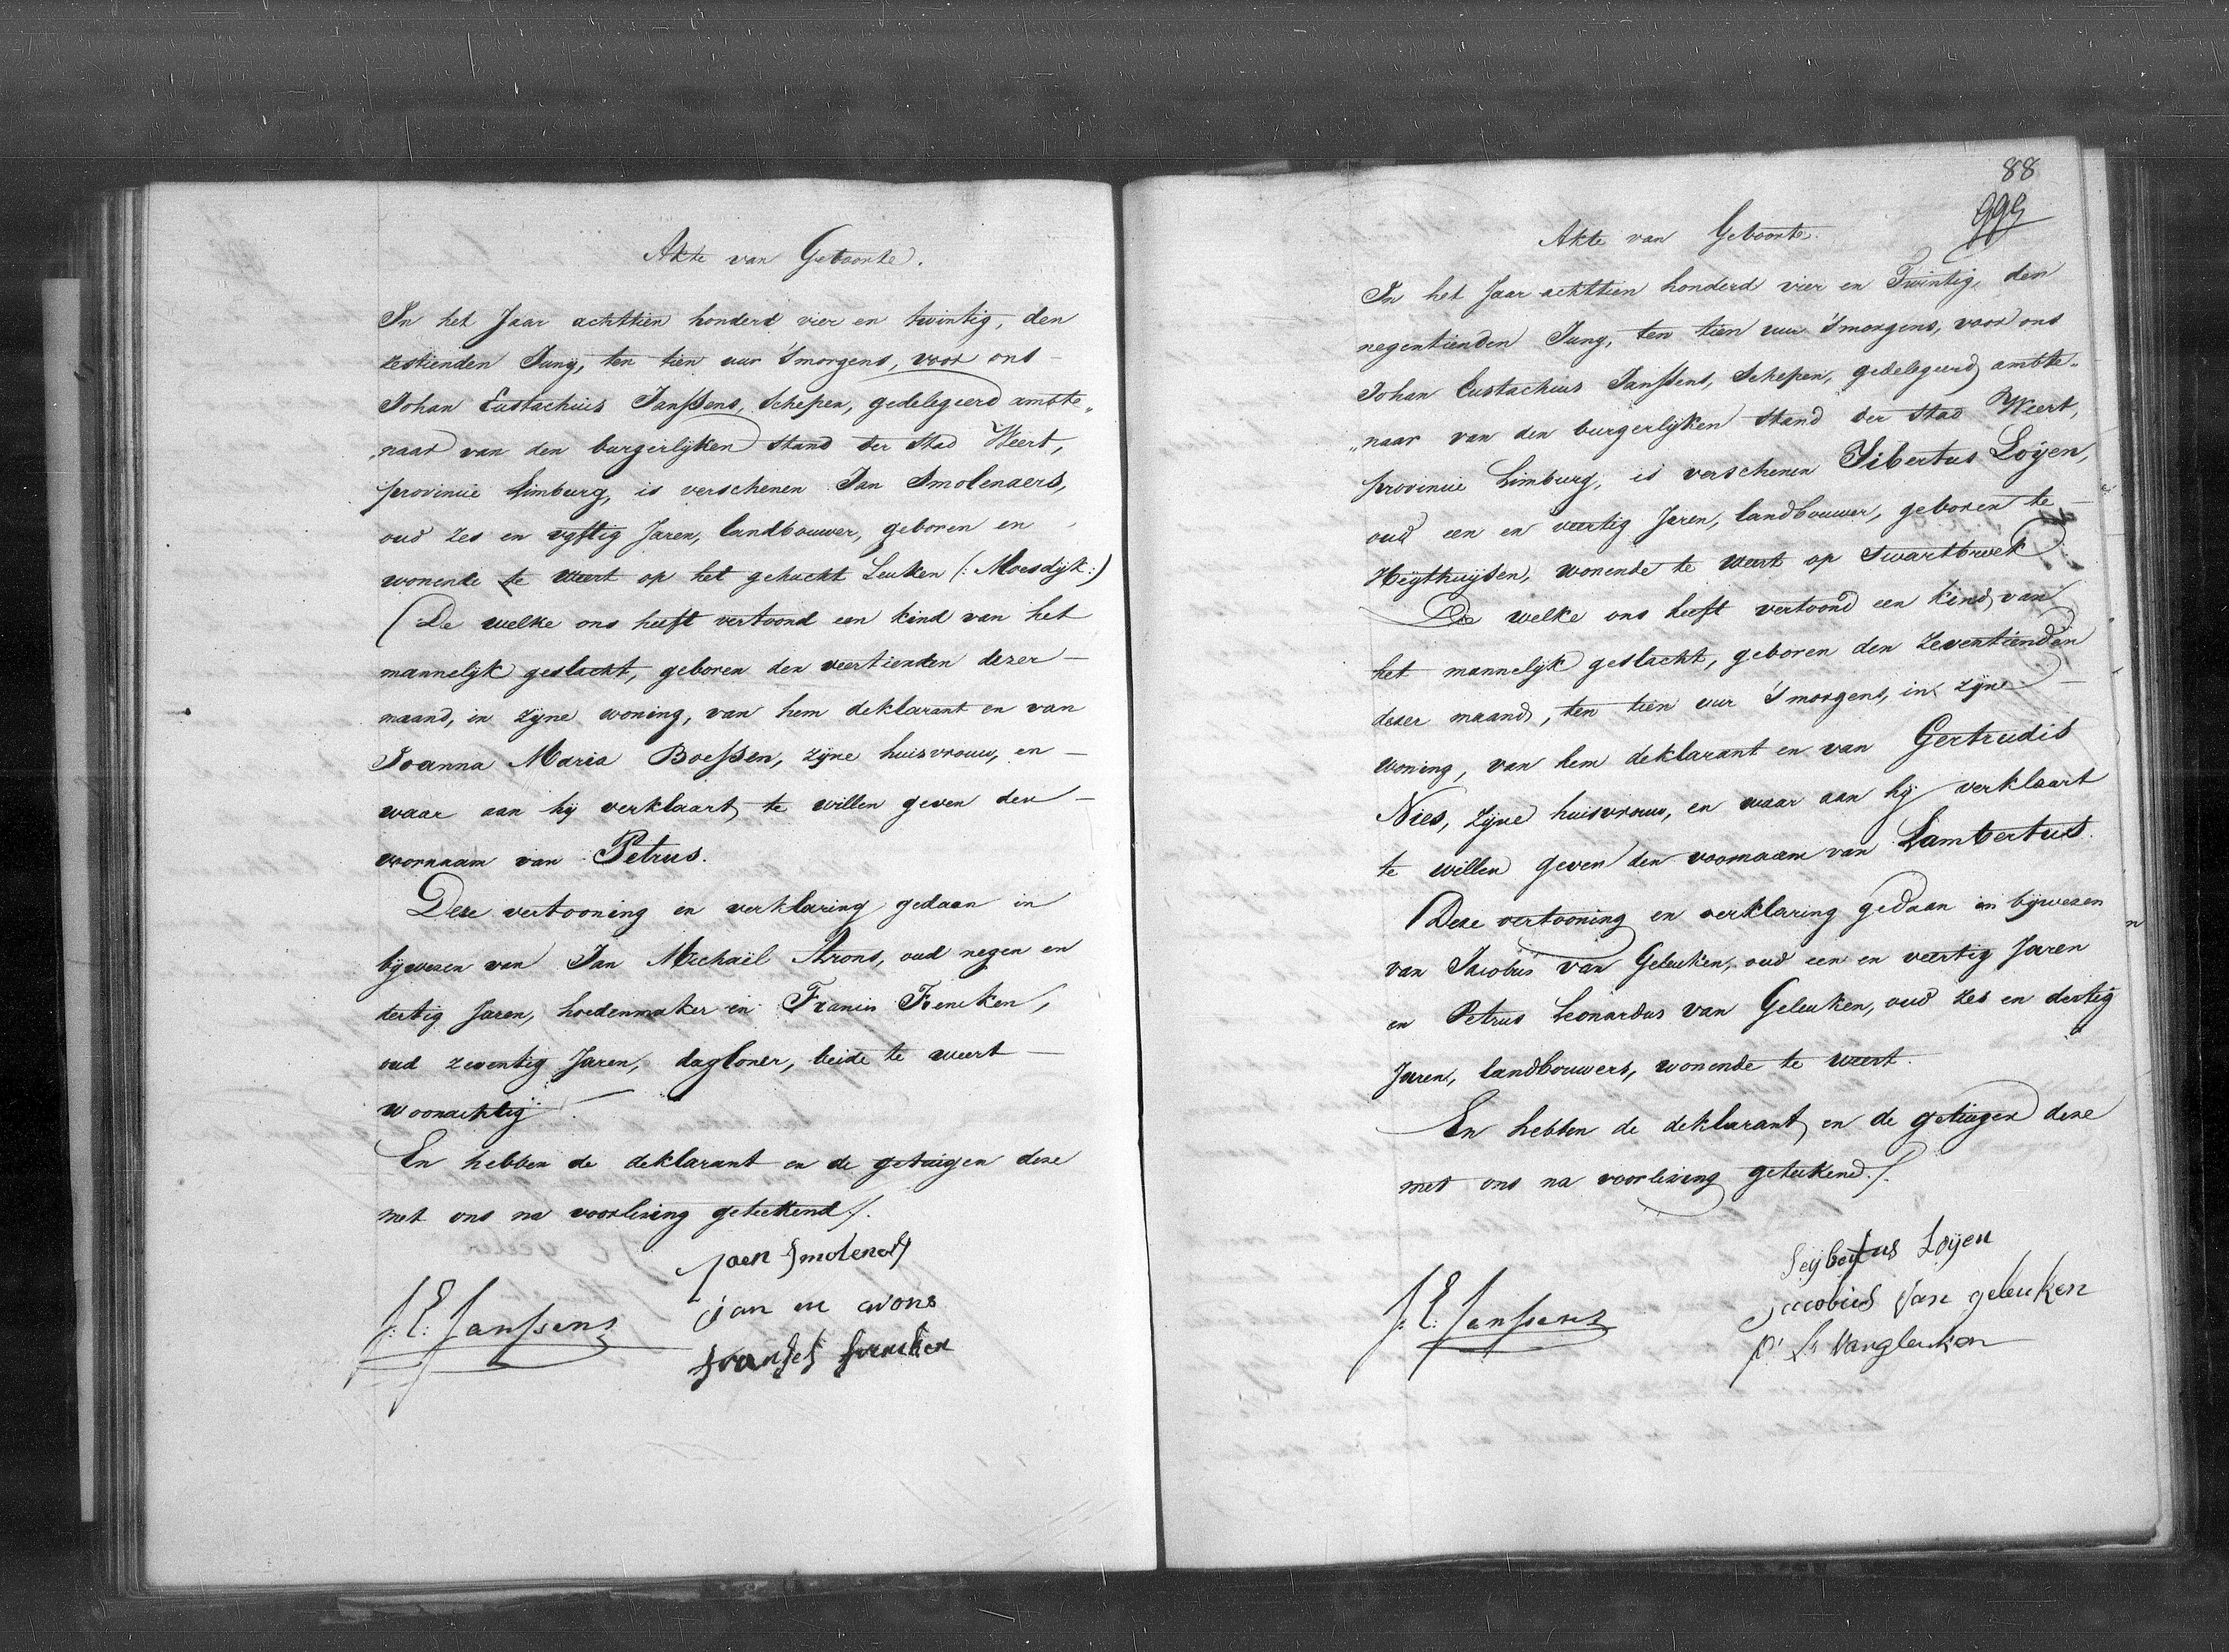 Akte van Geboorte.
In het Jaar achttien honderd vier en twintig, den
zestienden Juny, ten tien uur 'smorgens, voor ons
Johan Eustachius Janssens, Schepen, gedelegeerd ambte„
„naar van den burgerlyken stand der Stad Weert,
provincie Limburg, is verschenen Jan Smolenaers,
oud zes en vyftig Jaren, landbouwer, geboren en
wonende te Weert op het gehucht Leuken (: Moesdyk :)
De welke ons heeft vertoond een kind van het
mannelyk geslacht, geboren den veertienden dezer
maand, in zyne woning, van hem deklarant en van
Joanna Maria Boessen, zyne huisvrouw, en
waar aan hy verklaart te willen geven den
voornaam van Petrus.
Deze vertooning en verklaring gedaan in
bywezen van Jan Michaël Arons, oud negen en
dertig Jaren, hoedenmaker en Francis Frencken,
oud zeventig Jaren, dagloner, beide te weert
woonachtig.
En hebben de deklarant en de getuigen deze
met ons na voorlezing geteekend /.
Jaen Smolenars
J: E: Janssens
Jan m arons
franses frencken
88
Akte van Geboorte.
In het Jaar achttien honderd vier en Twintig, den
negentienden Juny, ten tien uur 'smorgens, voor ons
Johan Eustachius Janssens, Schepen, gedelegeerd ambte„
„naar van den burgerlyken stand der stad Weert,
provincie Limburg, is verschenen Sibertus Loÿen,
oud een en veertig Jaren, landbouwer, geboren te
Heÿthuÿsen, wonende te weert op Swartbroek
De welke ons heeft vertoond een kind van
het mannelyk geslacht, geboren den zeventienden
dezer maand, ten tien uur 'smorgens, in zyne
woning, van hem deklarant en van Gertrudis
Nies, zyne huisvrouw, en waar aan hy verklaart
te willen geven den voornaam van Lambertus.
Deze vertooning en verklaring gedaan in bywezen
van Jacobus van Geleuken, oud een en veertig Jaren
en Petrus Leonardus van Geleuken, oud zes en dertig
Jaren, landbouwers, wonende te weert.
En hebben de deklarant en de getuigen deze
met ons na voorlezing geteekend /.
Seÿbertus Loÿen
J: E: Janssens
Jacobus Van geleuken
p: L: Vangleuken